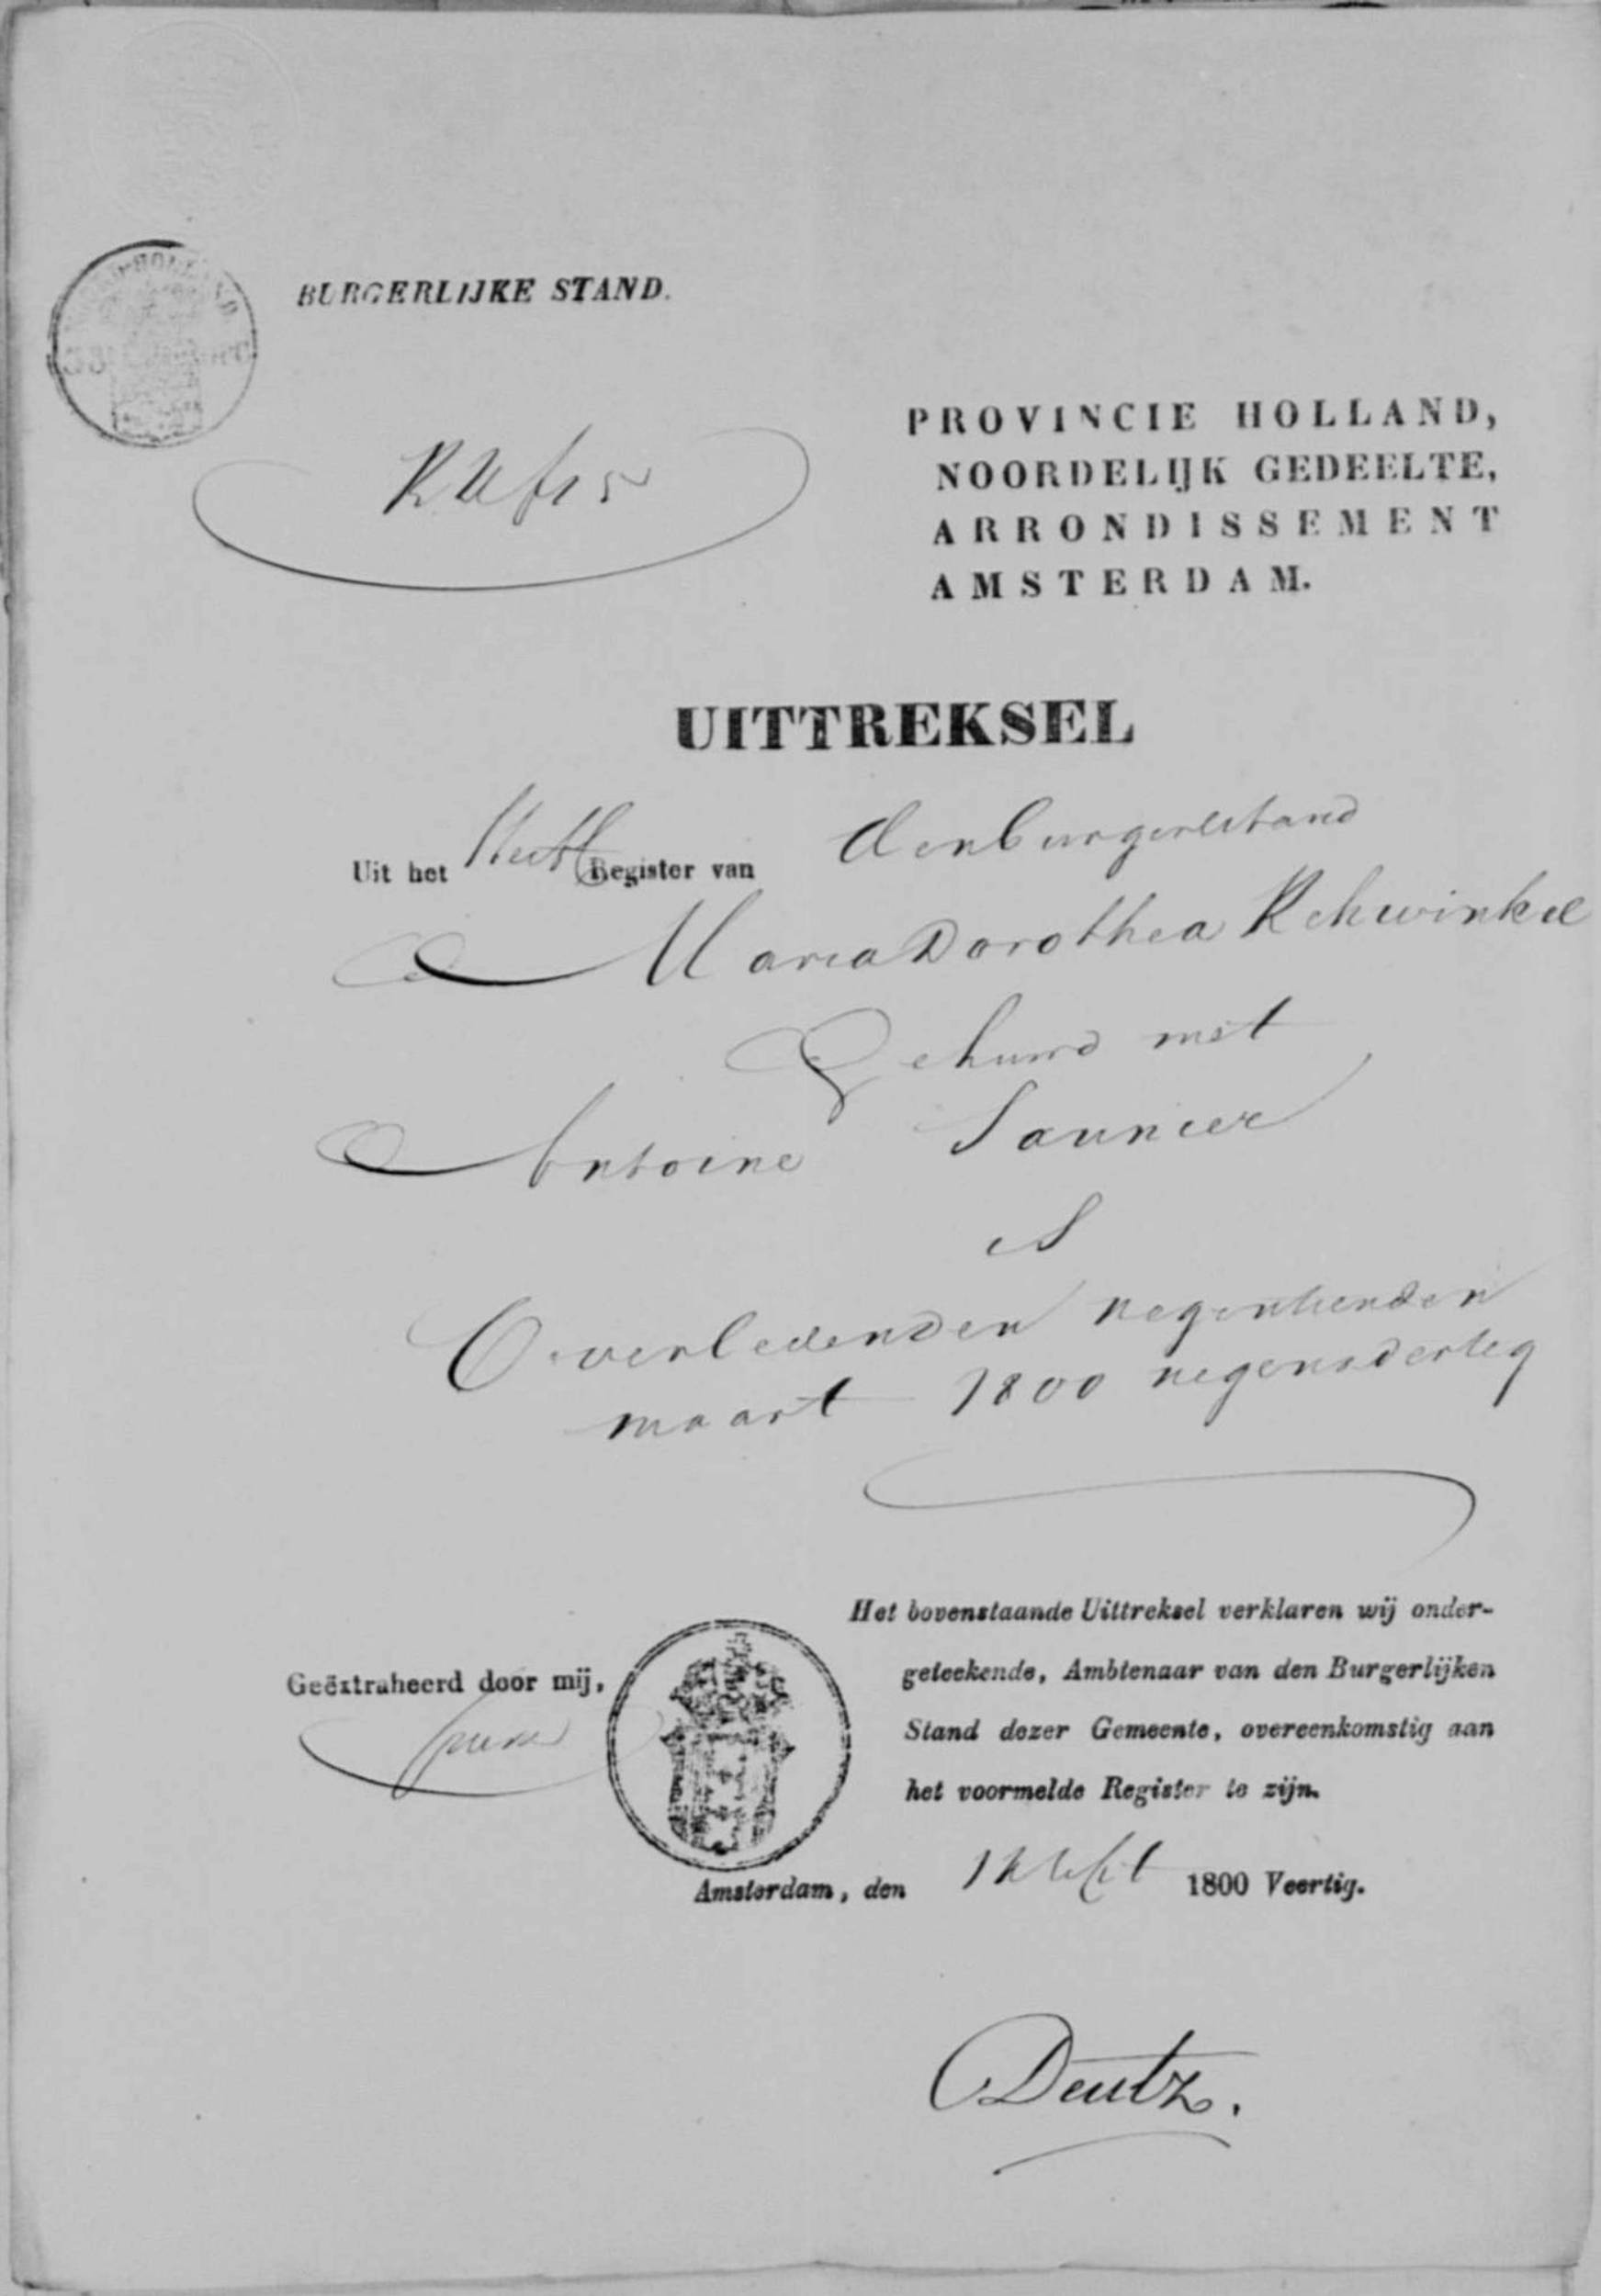 BURGERLIJKE STAND.
PROVINCIE HOLLAND,
NOORDELIJK GEDEELTE,
ARRONDISSEMENT
AMSTERDAM.
UITTREKSEL
Uit het Register van den burgerlstand
Maria Dorothea Rehwinkel
Gehuwd met
Antoine Saunier
is
Overleden den negentienden
maart 1800 negenendertig
Het bovenstaande Uittreksel verklaren wij onder-
geteekende, Ambtenaar van den Burgerlijken
Geëxtraheerd door mij,
Stand dezer Gemeente, overeenkomstig aan
het voormelde Register te zijn.
Amsterdam, den 1800 Veertig.
Deutz.